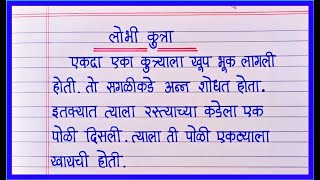 लोभी कुत्रा
एकदा एका कुत्र्याला खूप भूक लागली
होती. तो सगळीकडे अन्न शोधत होता.
इतक्यात त्याला रस्त्याच्या कडेला एक
पोळी दिसली. त्याला ती पोळी एकट्याला
खायची होती.